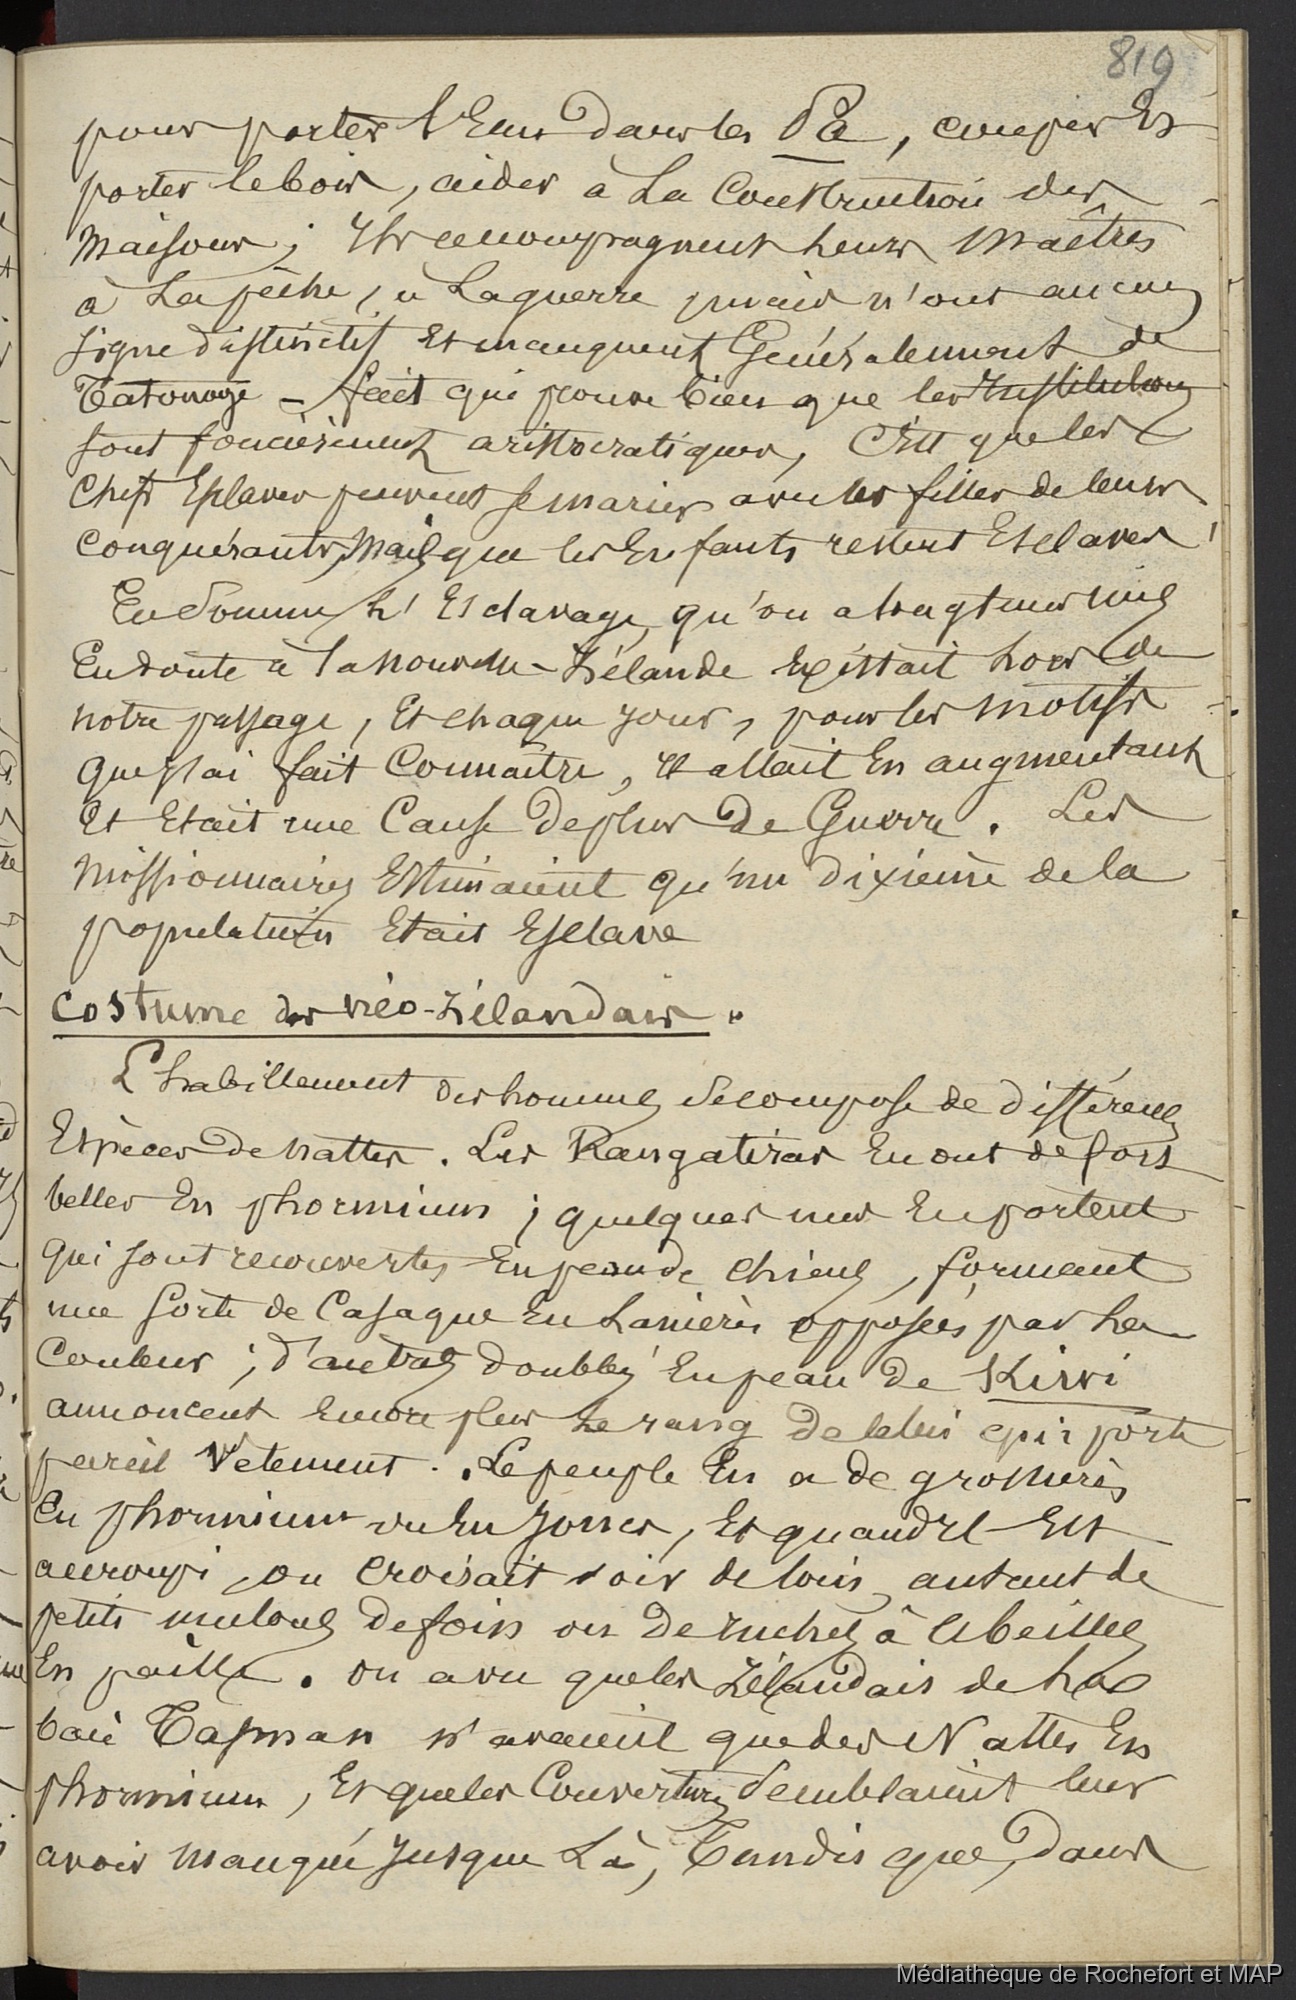 819
pour porter l'Eau dans les Pâ, couper Et
porter le bois, aider à La Construction des
Maisons ; Ils accompagnent leurs Maîtres
à La pêche, à La guerre mais n'ont aucun
signe distinctif Et manquent Généralement de
Tatouage – fait qui prouve bien que les Institutions
sont foncièrement aristocratiques, C'est que les
Chefs Esclaves peuvent se marier avec les filles de leurs
Conquérants, Mais que les Enfants restent Esclaves !
En Somme L'Esclavage, qu'on a longtemps mis
En doute à la nouvelle-Zélande Existait lors de
notre passage, Et chaque jour, pour les motifs
que j'ai fait Connaître, Il allait En augmentant
Et Etait une Cause de plus de Guerre. Les
Missionnaires Estimaient qu'un dixième de la
population Etait Esclave
Costume des néo-Zélandais.
L'habillement des hommes se compose de différentes
Espèces de nattes. Les Rangatiras En ont de fort
belles En phormium ; quelques uns En portent
qui sont recouvertes En peau de chiens, formant
une sorte de Casaque En Lanières opposées par La
Couleur ; d'autres doublés En peau de Kiwi
annoncent Encore plus Le rang de celui qui porte
pareil Vêtement. Le peuple En a de grossières
En phormium ou En Joncs, Et quand Il Est
accroupi, on croirait voir de loin, autant de
petits mulons de foin ou De ruches à Abeilles
En paille. On a vu que les Zélandais de La
baie Tasman n'avaient que des Nattes En
phormium, Et que les Couvertures Semblaient leur
avoir Manqué Jusque Là, Tandis que, dans
Médiathèque de Rochefort et MAP